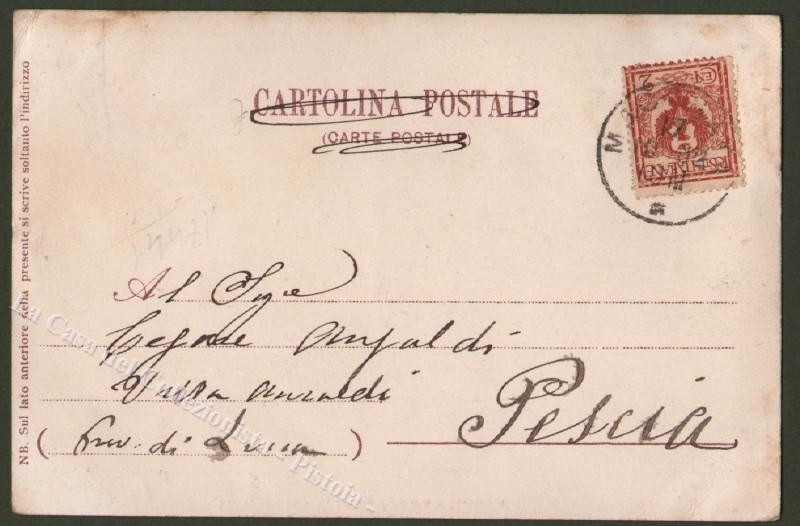 CARTOLINA POSTALE
(CARTE POSTALE)
NB. Sul lato anteriore della presente si scrive soltanto l'indirizzo
CEN. 2
POSTE ITALIANE
Al Sige
Cesare Anzaldi
Villa Anzaldi
Pescia
(Prov. di Lucca)
La Casa del Collezionista - Pistoia -